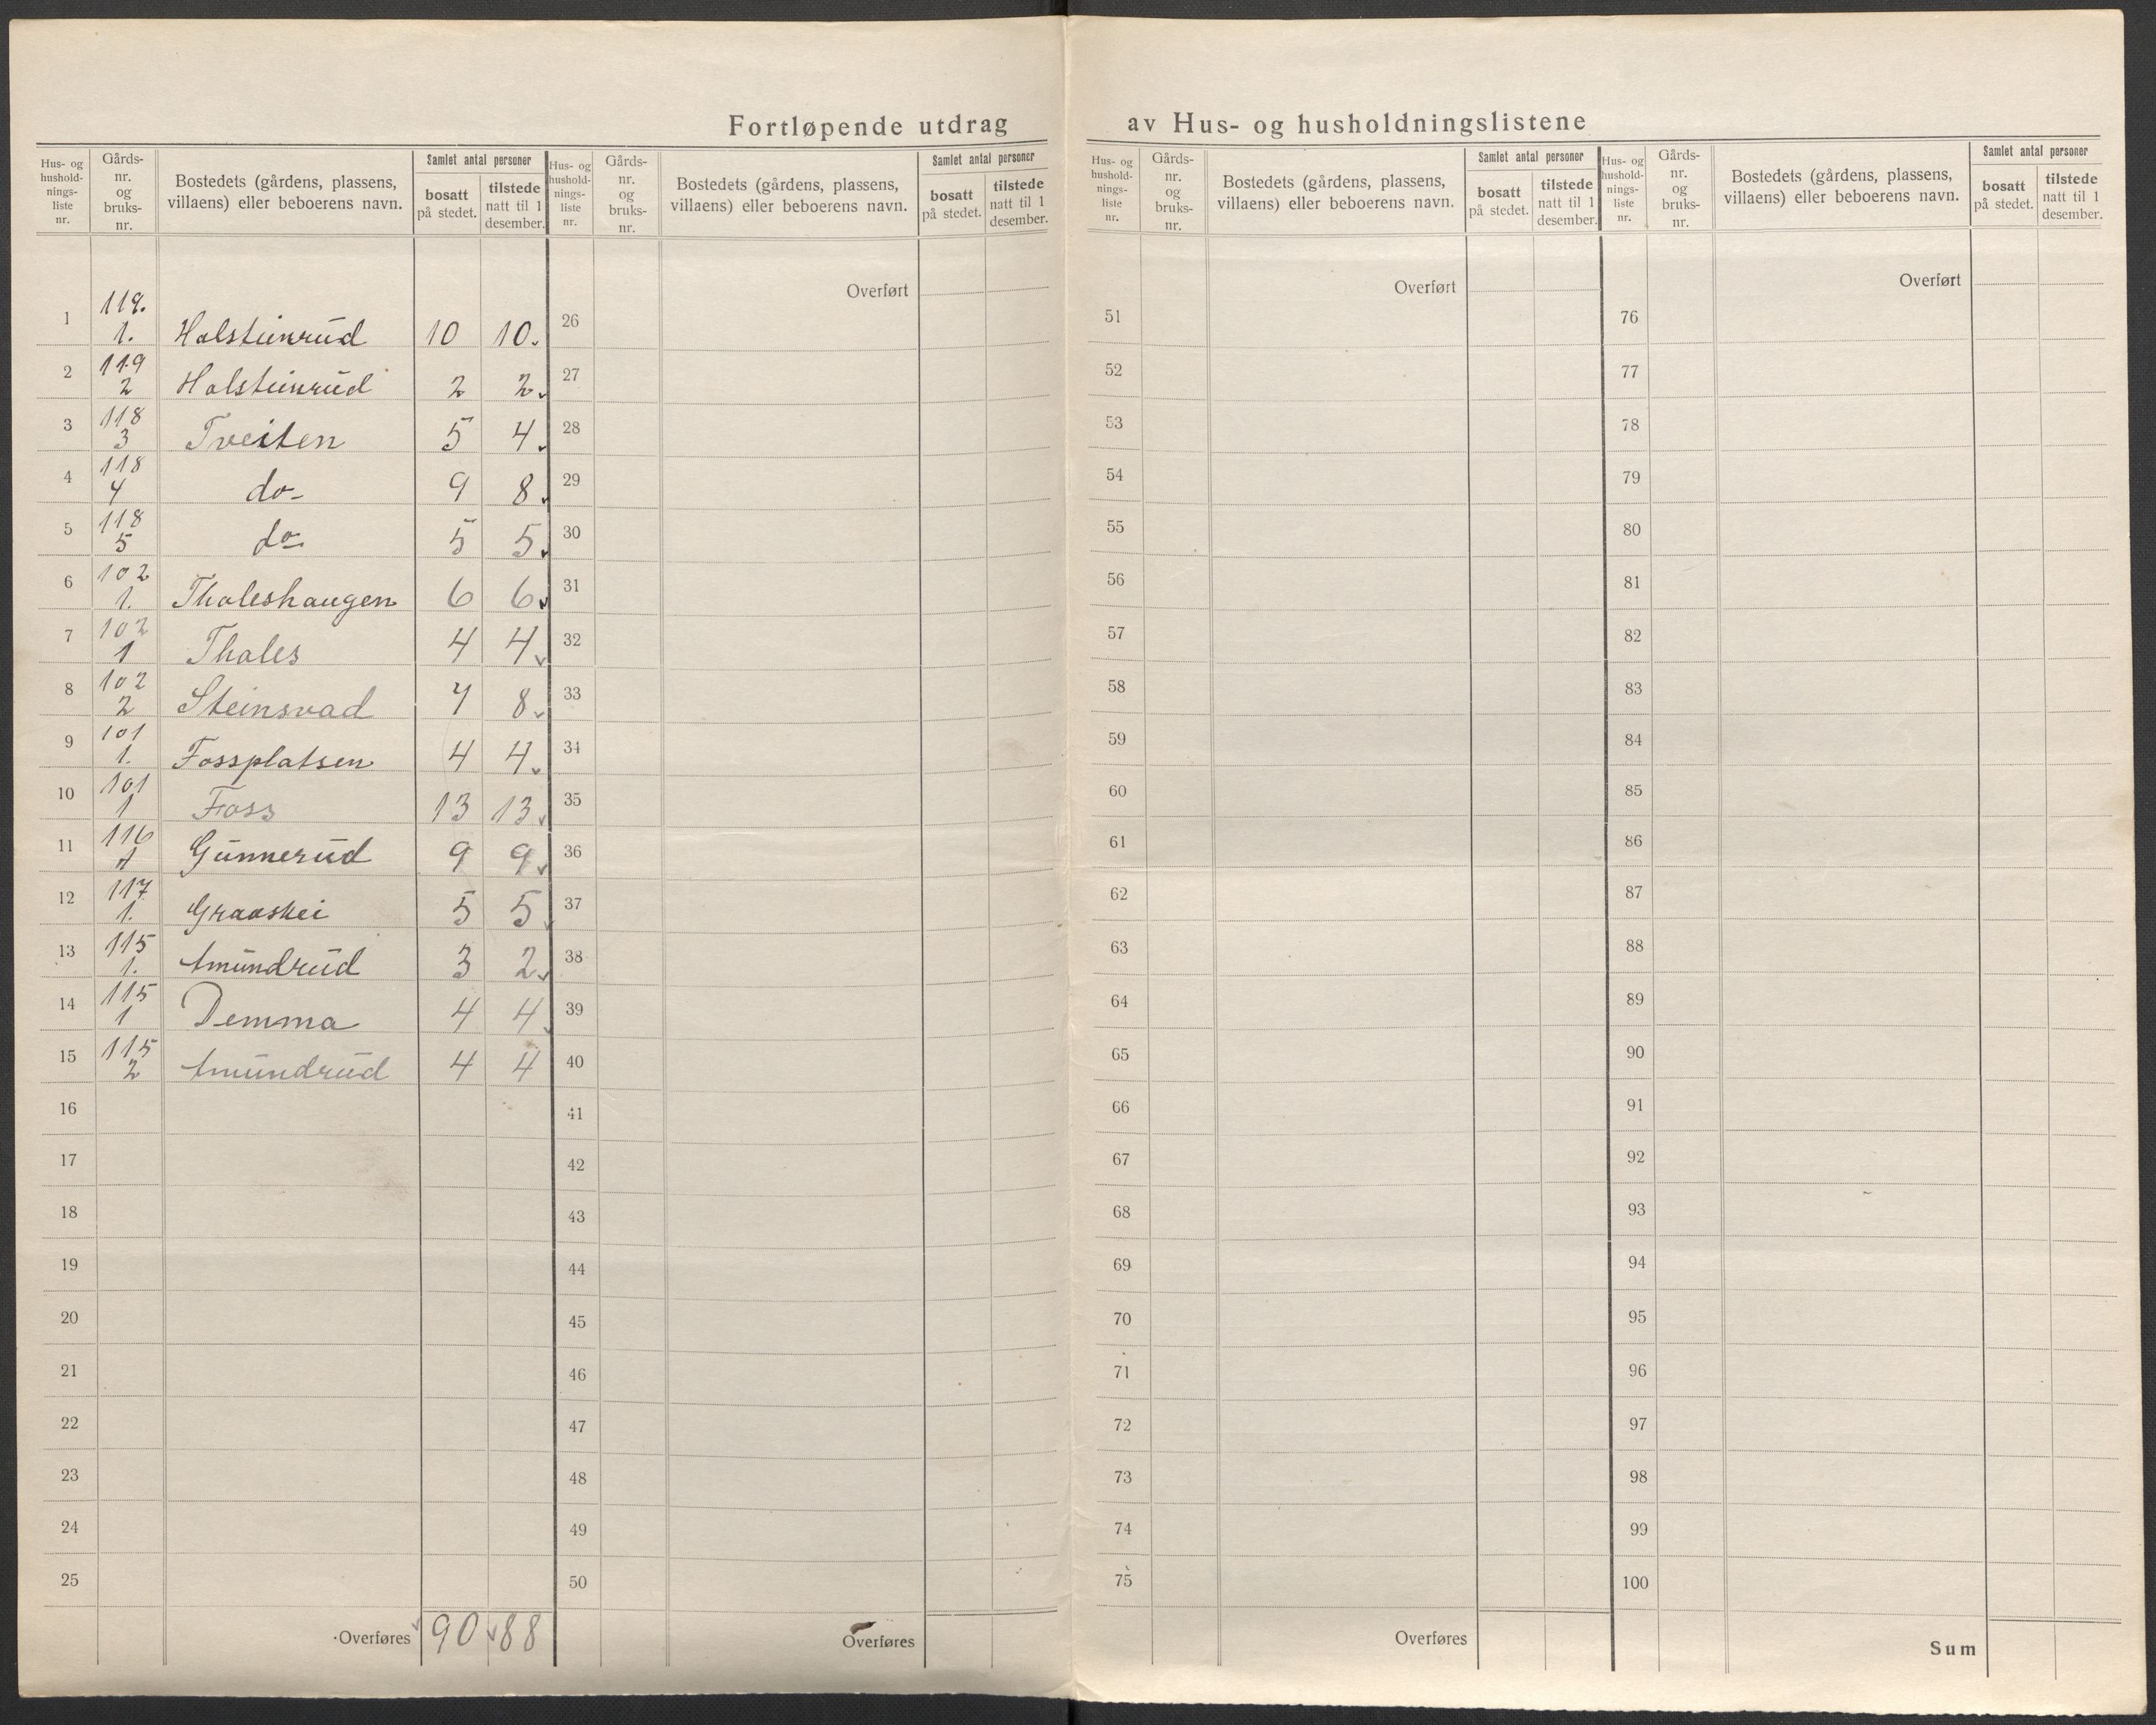 Fortløpende utdrag av Hus- og husholdningslistene
Hus- og hushold-nings-liste nr. Gårds-nr. og bruks-nr. Bostedets (gårdens, plassens, villaens) eller beboerens navn. Samlet antal personer bosatt på stedet. tilstede natt til 1 desember.
Hus- og hushold-nings-liste nr. Gårds-nr. og bruks-nr. Bostedets (gårdens, plassens, villaens) eller beboerens navn. Samlet antal personer bosatt på stedet. tilstede natt til 1 desember.
Hus- og hushold-nings-liste nr. Gårds-nr. og bruks-nr. Bostedets (gårdens, plassens, villaens) eller beboerens navn. Samlet antal personer bosatt på stedet. tilstede natt til 1 desember.
Hus- og hushold-nings-liste nr. Gårds-nr. og bruks-nr. Bostedets (gårdens, plassens, villaens) eller beboerens navn. Samlet antal personer bosatt på stedet. tilstede natt til 1 desember.
Overført Overført Overført
1 119. 1. Holsteinrud 10 10. 26 51 76
2 119 2 Holsteinrud 2 2 27 52 77
3 118 3 Tveiten 5 4 28 53 78
4 118 4 do- 9 8 29 54 79
5 118 5 do 5 5 30 55 80
6 102 1. Tholeshaugen 6 6 31 56 81
7 102 1 Tholes 4 4 32 57 82
8 102 2 Steinsvad 7 8 33 58 83
9 101 1. Fossplatsen 4 4 34 59 84
10 101 1 Foss 13 13 35 60 85
11 116 1 Gunnerud 9 9 36 61 86
12 117 1. Graaskei 5 5 37 62 87
13 115 1. Amundrud 3 2 38 63 88
14 115 1 Demma 4 4 39 64 89
15 115 2 Amundrud 4 4 40 65 90
16 41 66 91
17 42 67 92
18 43 68 93
19 44 69 94
20 45 70 95
21 46 71 96
22 47 72 97
23 48 73 98
24 49 74 99
25 50 75 100
Overføres 90 88 Overføres Overføres Sum